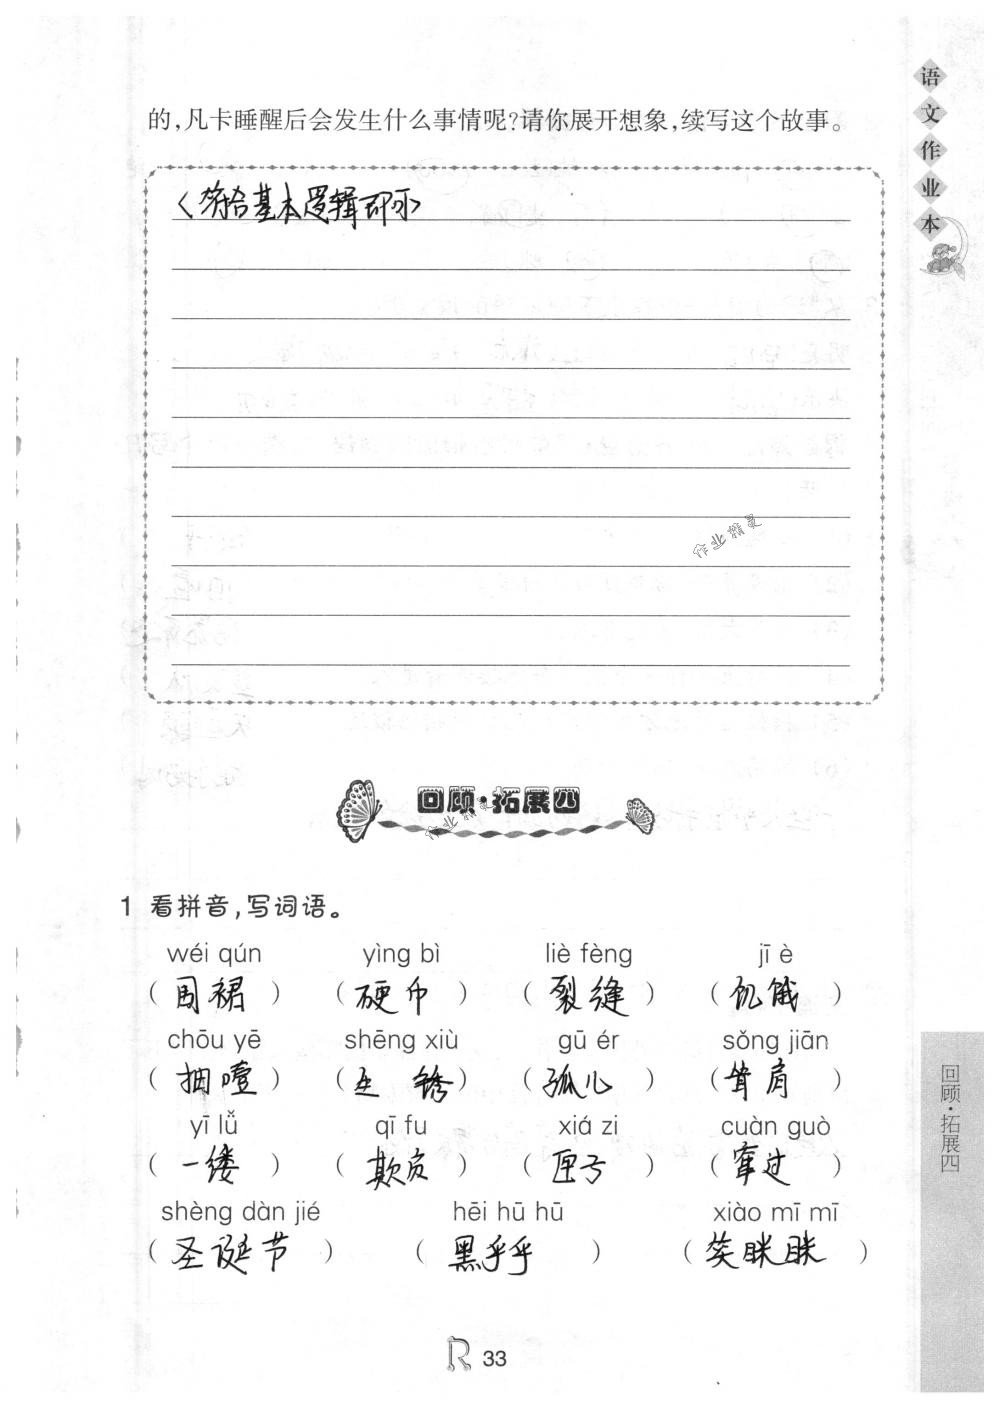 语文作业本
的,凡卡睡醒后会发生什么事情呢?请你展开想象,续写这个故事。
〈符合基本逻辑即可〉
作业精灵
回顾·拓展四
作业精灵
1 看拼音,写词语。
wéi qún yìng bì liè fèng jī è
(围裙) (硬币) (裂缝) (饥饿)
chōu yē shēng xiù gū ér sǒng jiān
(抽噎) (生锈) (孤儿) (耸肩)
yī lǚ qī fu xiá zi cuàn guò
(一缕) (欺负) (匣子) (窜过)
shèng dàn jié hēi hū hū xiào mī mī
(圣诞节) (黑乎乎) (笑眯眯)
回顾·拓展四
R 33